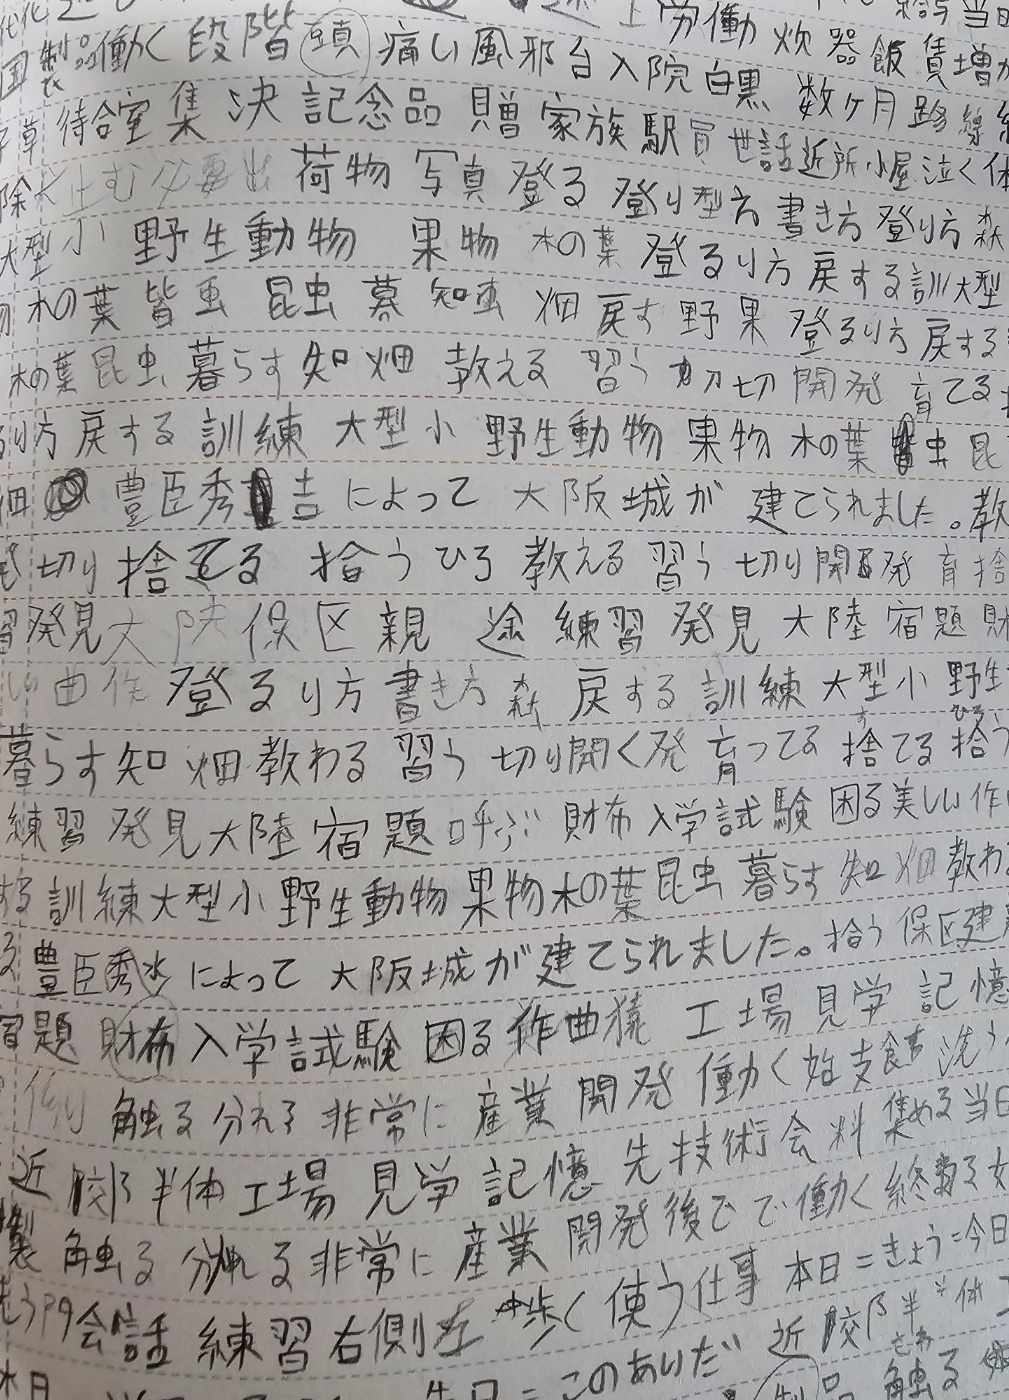 上 労働 炊 器 飯 賃 増
製品 働く 段階 頭 痛い 風邪 台 入院 白黒 数ヶ月 路線
草 待合室 集 決 記念品 贈 家族 駅員 世話 近所 小屋 泣く 体
除 止む 必要 出 荷物 写真 登る 登り 型 方 書き方 登り方 森
大型 小 野生動物 果物 木の葉 登るり方 戻する 訓 大型
木の葉 皆 虫 昆虫 暮 知 虫 畑 戻す 野 果 登るり方 戻する
木の葉 昆虫 暮らす 知 畑 教える 習う 切 開発 育てる
り方 戻する 訓練 大型 小 野生動物 果物 木の葉 虫 昆
畑 豊臣秀吉 によって 大阪城が 建てられました。教
切り 捨てる 拾う ひろ 教える 習う 切り開 発 育 捨
習 発見 大陸 保 区 親 途 練習 発見 大陸 宿題 財
曲 作 登るり方 書き方 森 戻する 訓練 大型 小 野生
暮らす 知 畑 教わる 習う 切り開く 発 育ってる 捨てる 拾う
練習 発見 大陸 宿題 呼ぶ 財布 入学試験 困る 美しい 作
訓練 大型 小 野生動物 果物 木の葉 昆虫 暮らす 知 畑 教わ
る 豊臣秀 によって 大阪城が 建てられました。拾う 保 区 建
宿題 財布 入学試験 困る 作曲 猿 工場 見学 記憶
側 触る 分れる 非常に 産業 開発 働く 始 支 食 洗う
近 半 体 工場 見学 記憶 先 技術 会 料 集める 当日
製 触る 分れる 非常に 産業 開発 後で で 働く 終 る 女
会話 練習 右側 左 歩く 使う 仕事 本日=きょう=今日
本日 先日=このあいだ 近 半 体
品 触る